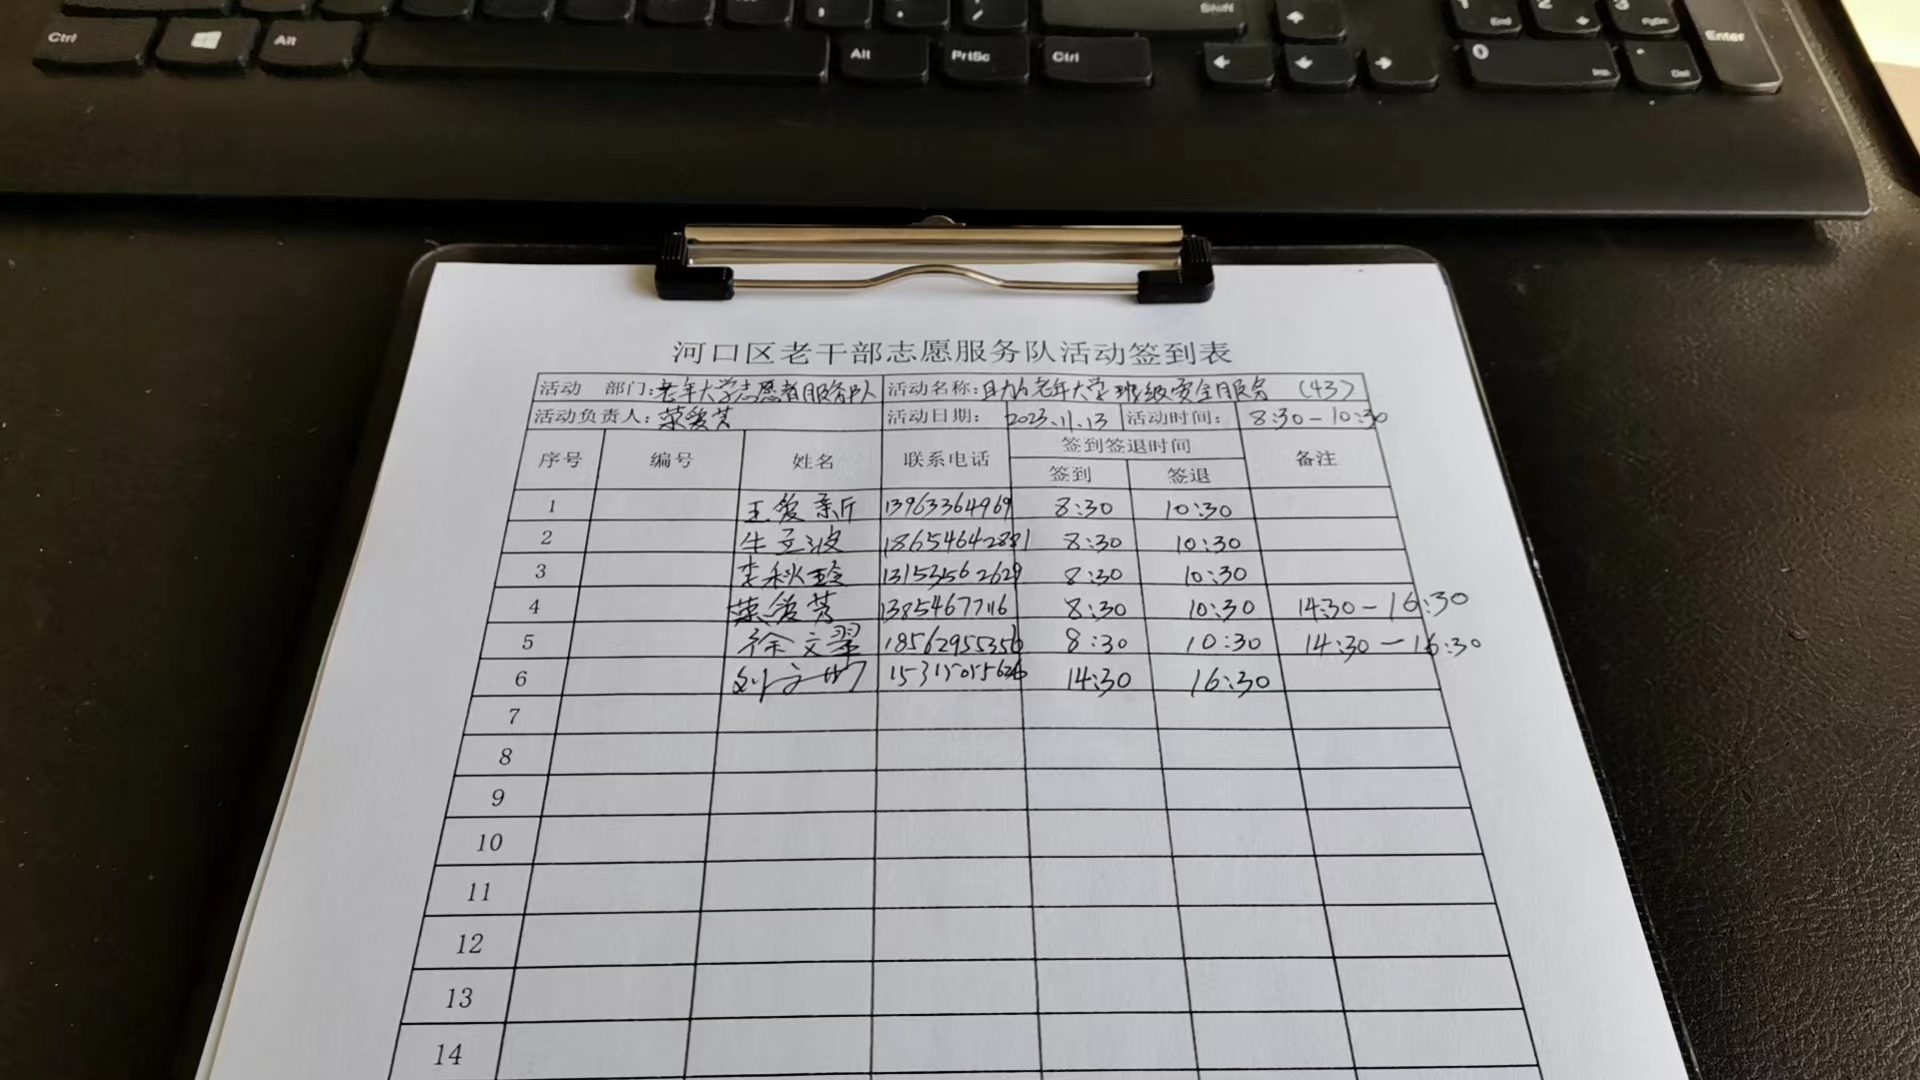 Shift
End
PgDn
Enter
Ctrl
Alt
Alt
PrtSc
Ctrl
0
Ins
Del
河口区老干部志愿服务队活动签到表
活动 部门:老年大学志愿者服务队 活动名称:自力心老年大学班级安全服务 (43)
活动负责人:荣爱芳 活动日期: 2023.11.13 活动时间: 8:30-10:30
序号 编号 姓名 联系电话 签到签退时间 备注
签到 签退
1 王爱新 13963364969 8:30 10:30
2 牛立波 18654642881 8:30 10:30
3 李秋玲 13153562629 8:30 10:30
4 荣爱芳 8:30 10:30 14:30-16:30
5 徐文翠 18562955356 8:30 10:30 14:30-16:30
6 刘 14:30 16:30
7
8
9
10
11
12
13
14